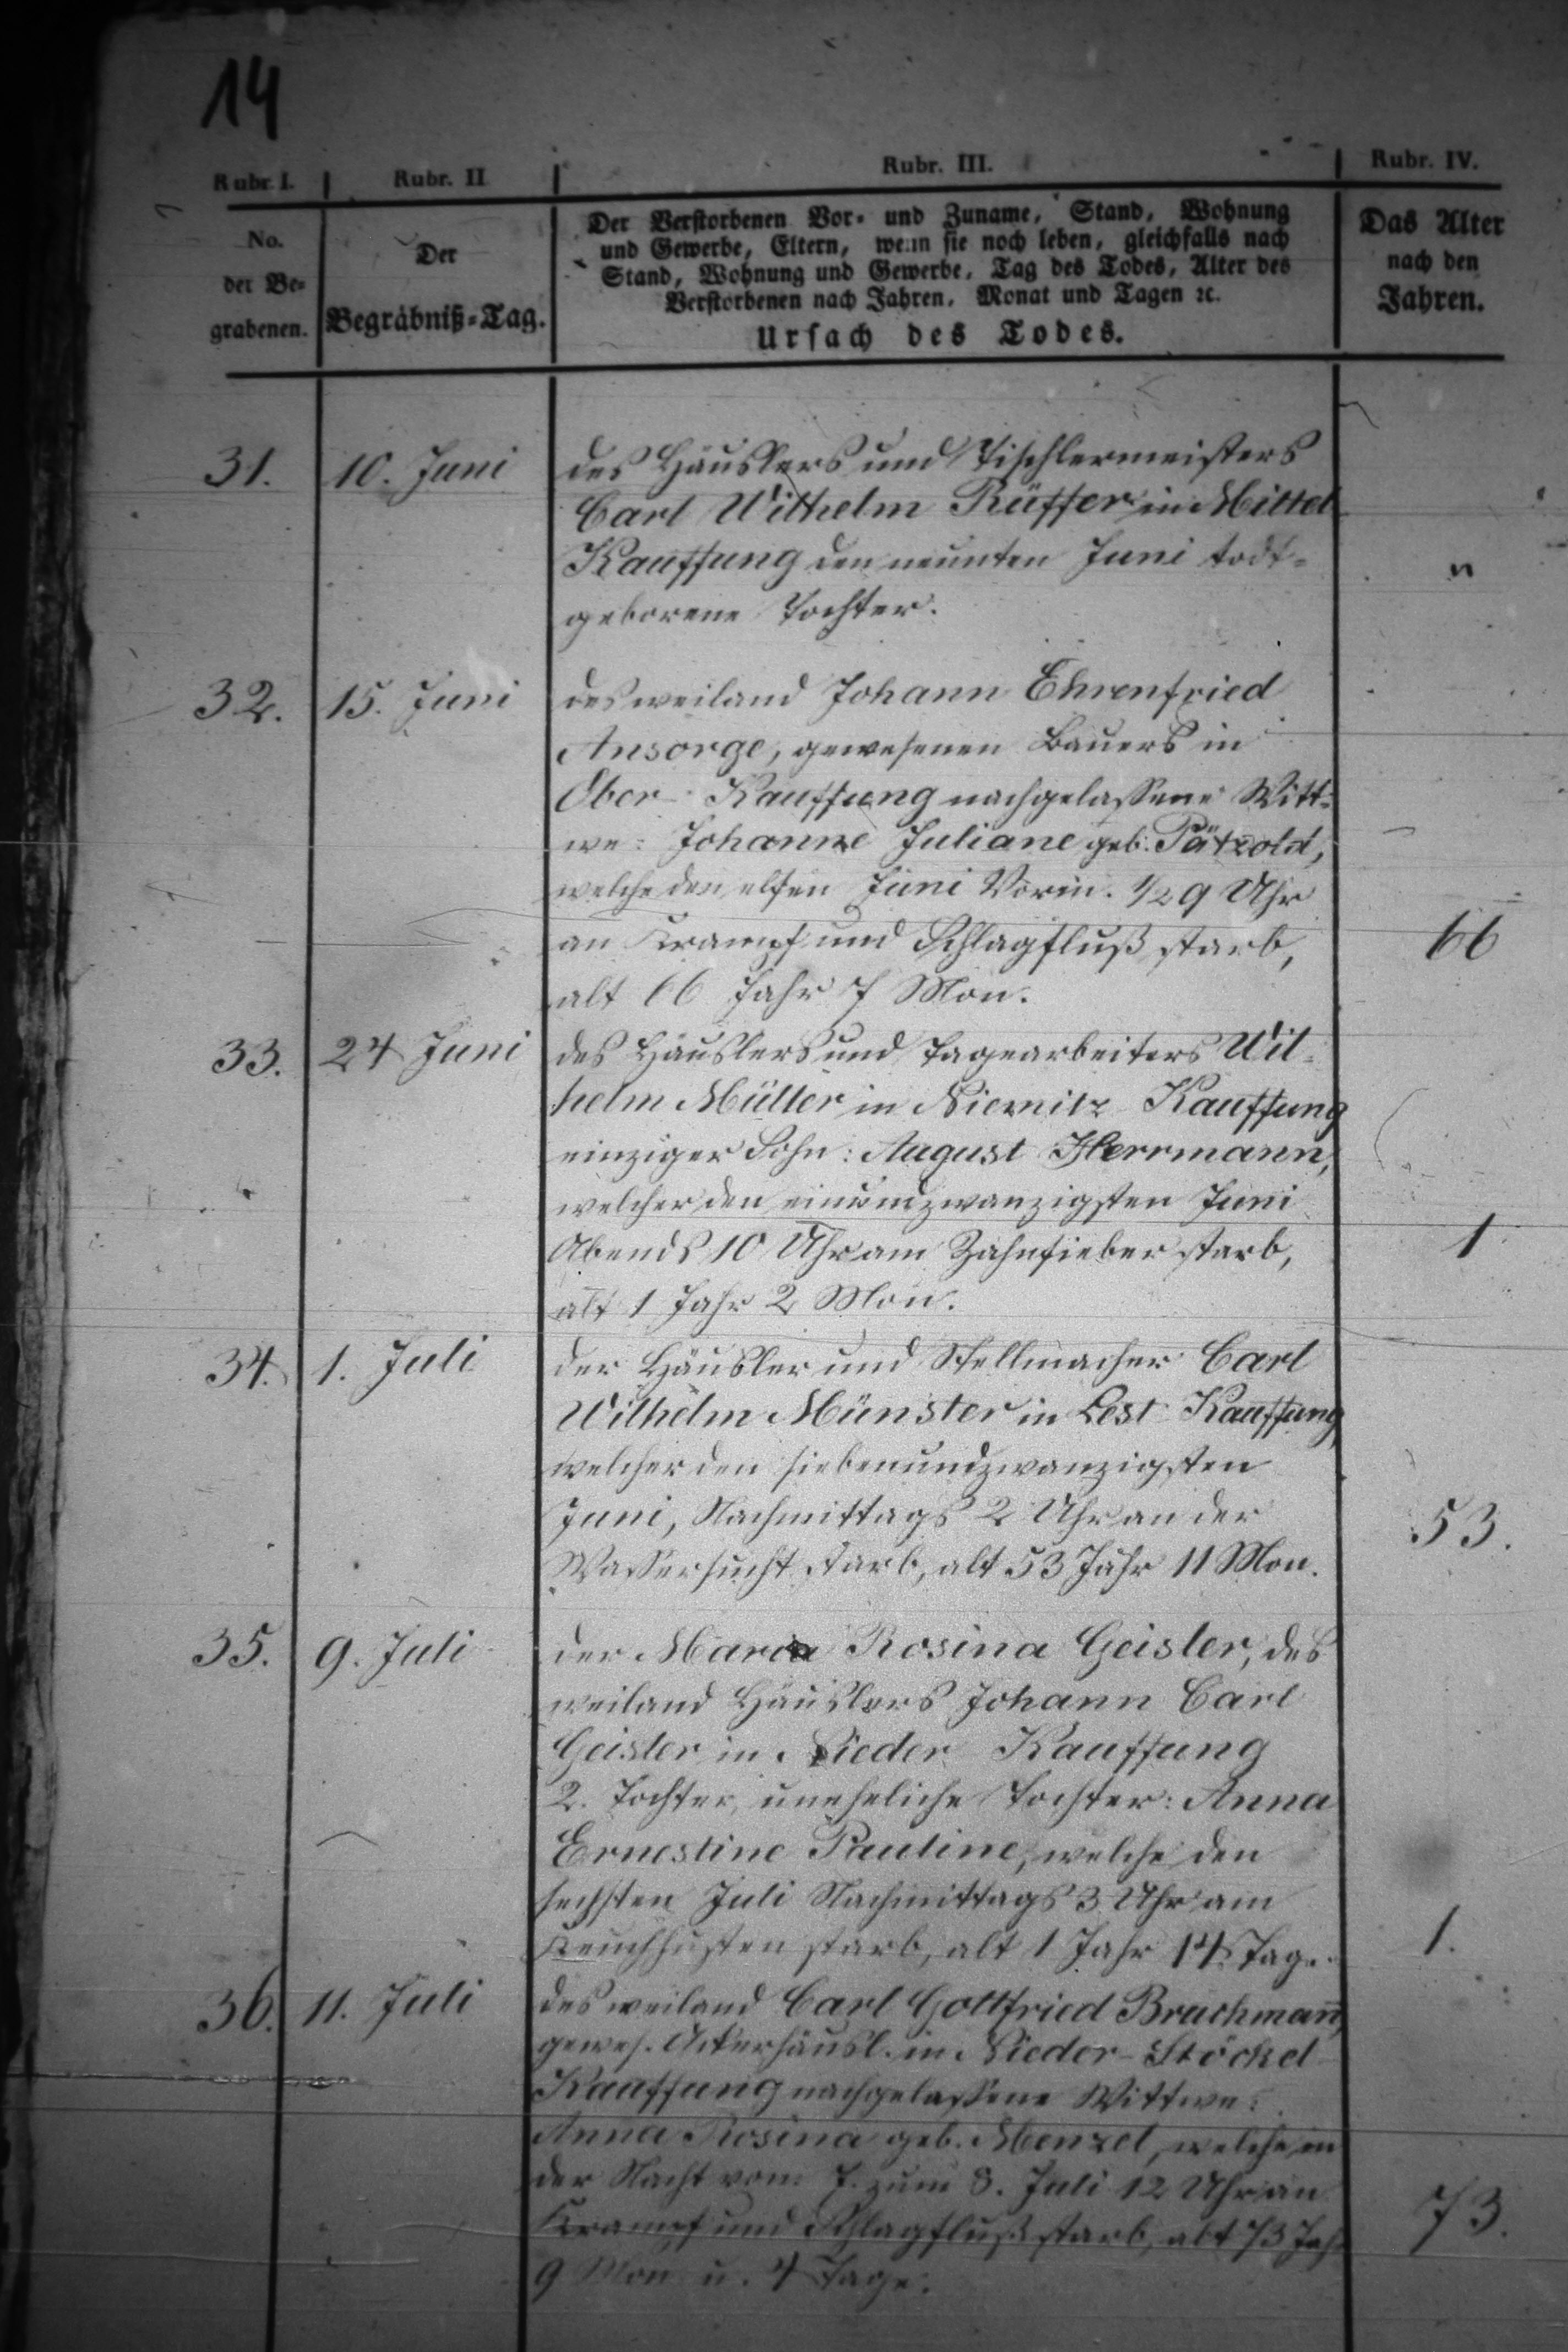 14
Rubr. I. Rubr. II Rubr. III. Rubr. IV.
No. der Be-grabenen.
Der Begräbniß-Tag.
Der Verstorbenen Vor- und Zuname, Stand, Wohnung
und Gewerbe, Eltern, wenn sie noch leben, gleichfalls nach
Stand, Wohnung und Gewerbe, Tag des Todes, Alter des
Verstorbenen nach Jahren, Monat und Tagen ꝛc.
Ursach des Todes.
Das Alter
nach den
Jahren.
31. 10. Juni des Häuslers und Tischlermeisters
Carl Wilhelm Rüffer in Mittel
Kauffung den neunten Juni todt-
geborene Tochter. "
32. 15. Juni des weiland Johann Ehrenfried
Ansorge, gewesenen Bauers in
Ober-Kauffung nachgelassene Witt-
we: Johanne Juliane geb. Pätzold,
welche den elften Juni Vorm. 1/2 9 Uhr
an Krampf und Schlagfluß starb, 66
alt 66 Jahr 7 Mon.
33. 24 Juni des Häuslers und Tagearbeiters Wil-
helm Müller in Niemitz-Kauffung
einziger Sohn: August Herrmann,
welcher den einundzwanzigsten Juni
Abends 10 Uhr am Zahnfieber starb, 1
alt 1 Jahr 2 Mon.
34. 1. Juli der Häusler und Stellmacher Carl
Wilhelm Münster in Lest-Kauffung,
welcher den siebenundzwanzigsten
Juni, Nachmittags 2 Uhr an der 53.
Wassersucht starb, alt 53 Jahr 11 Mon.
35. 9. Juli der Maria Rosina Geisler, des
weiland Häuslers Johann Carl
Geisler in Nieder Kauffung
2. Tochter, uneheliche Tochter: Anna
Ernestine Pauline, welche den
sechsten Juli Nachmittags 3 Uhr am
Keuchhusten starb, alt 1 Jahr 14 Tage. 1.
36. 11. Juli des weiland Carl Gottfried Bruchmann,
gewes. Ackerhäusl. in Nieder-Stöckel-
Kauffung nachgelassene Wittwe:
Anna Rosina geb. Menzel, welche in
der Nacht vom 7. zum 8. Juli 12 Uhr an
Krampf und Schlagfluß starb, alt 73 Jahr 73.
9 Mon. u. 4 Tage.